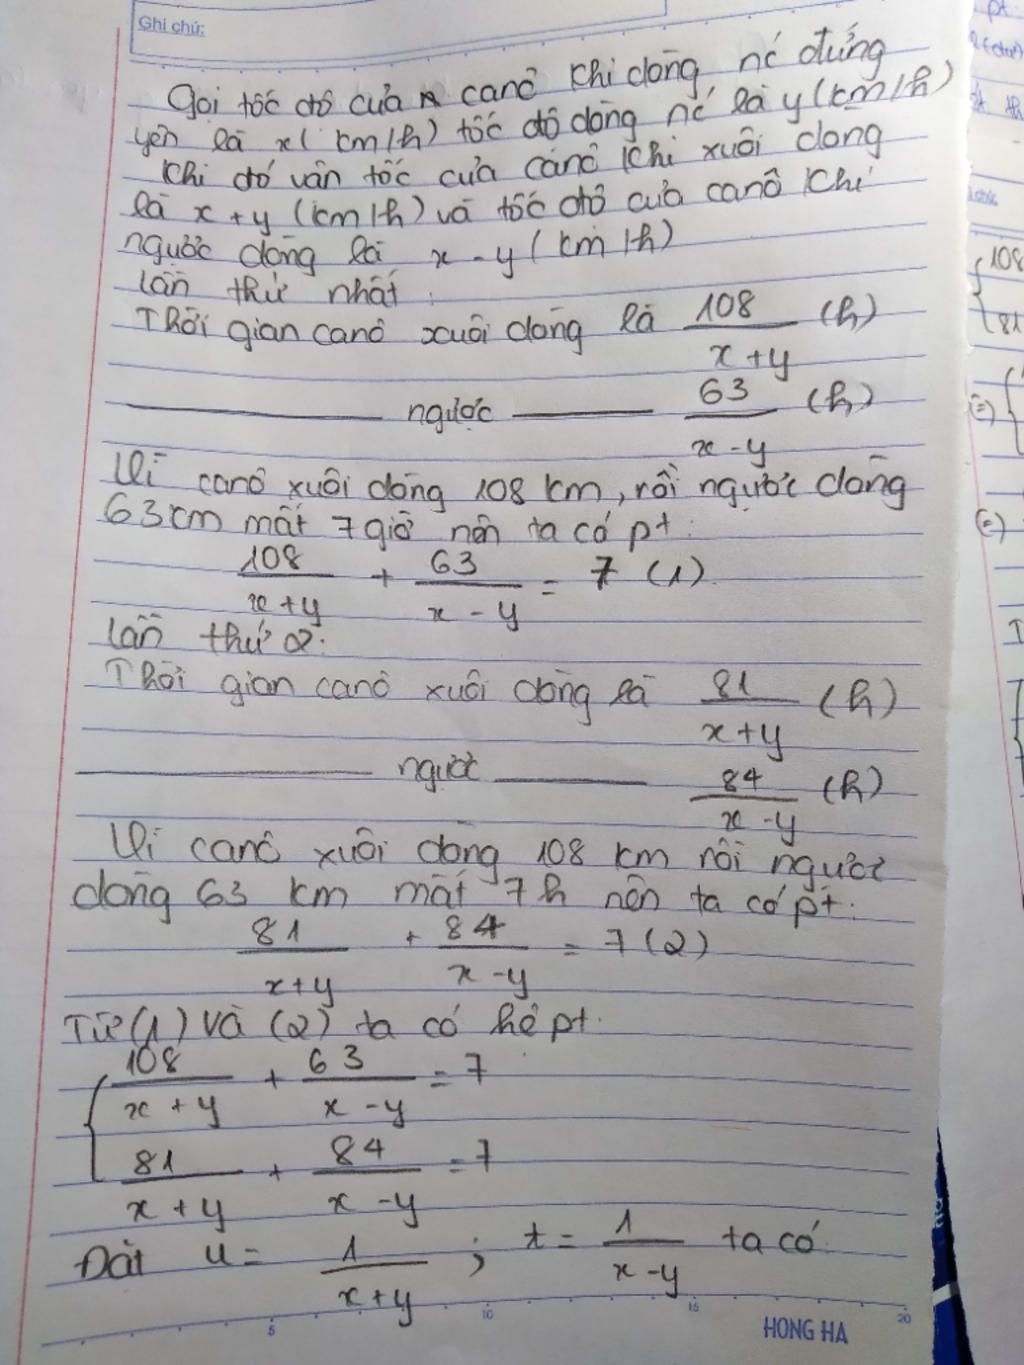 Ghi chú:
Gọi tốc độ của canô khi dòng nć đứng
yên là x( km/h) tốc độ dòng nć là y (km/h)
Khi đó vận tốc của canô khi xuôi dòng
là x + y (km/h) và tốc độ của canô khi
ngược dòng là x - y ( km/h)
Lần thứ nhất :
Thời gian canô xuôi dòng là 108/(x+y) (h)
ngược 63/(x-y) (h)
Vì canô xuôi dòng 108 km, rồi ngược dòng
63km mất 7 giờ nên ta có pt:
108/(x+y) + 63/(x-y) = 7 (1)
Lần thứ 2:
Thời gian canô xuôi dòng là 81/(x+y) (h)
ngược 84/(x-y) (h)
Vì canô xuôi dòng 108 km rồi ngược
dòng 63 km mất 7h nên ta có pt:
81/(x+y) + 84/(x-y) = 7 (2)
Từ (1) và (2) ta có hệ pt:
108/(x+y) + 63/(x-y) = 7
81/(x+y) + 84/(x-y) = 7
Đặt u = 1/(x+y) ; t = 1/(x-y) ta có
5 10 15 20
HONG HA